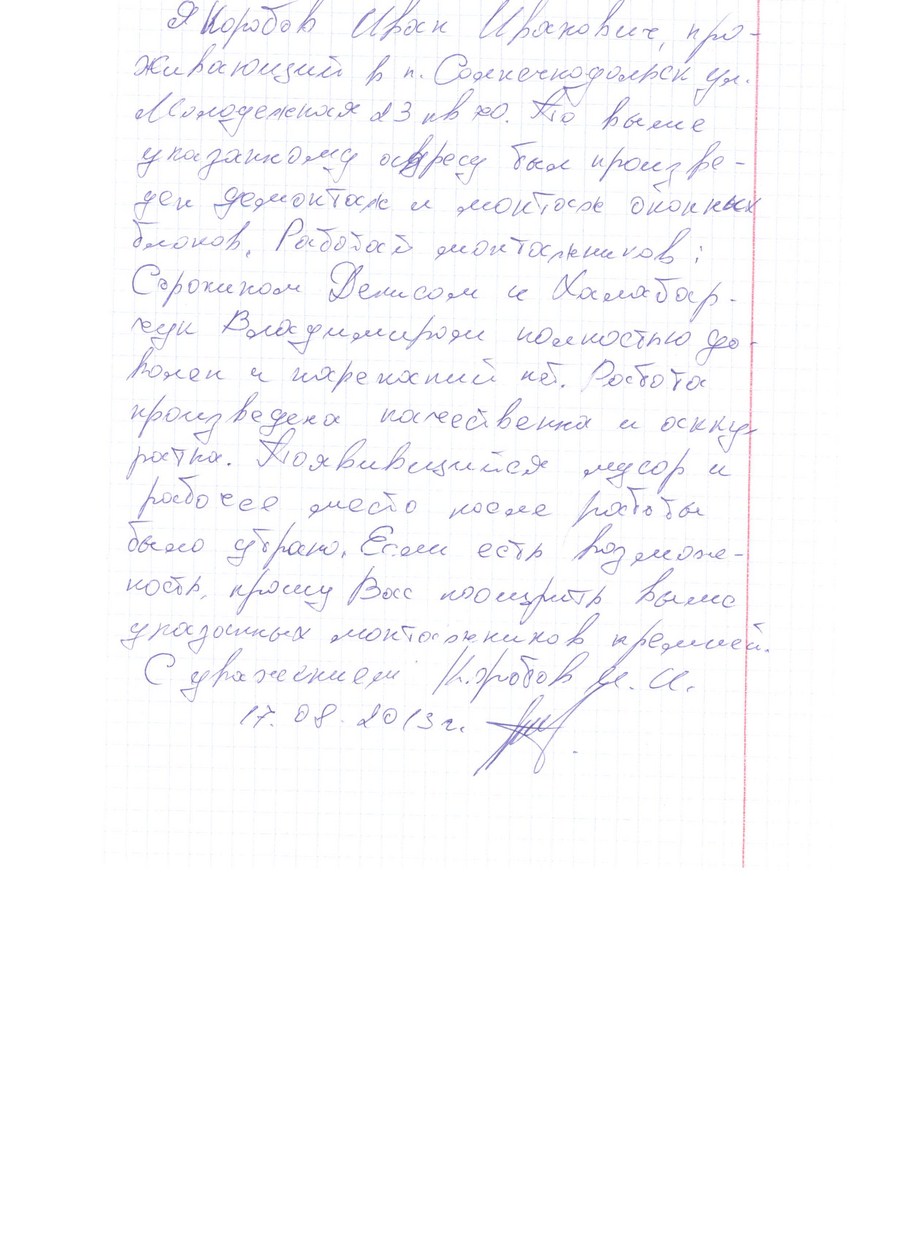 Я Коробов Иван Иванович, про-
живающий в п. Солнечнодольск ул.
Молодежная 23 кв 70. По выше
указанному адресу был произве-
ден демонтаж и монтаж оконных
блоков. Работай монтажников:
Сорокином Денисом и Халабар-
чук Владимиром полностью до-
волен и нареканий нет. Работа
произведена качественна и акку-
ратна. Появивщийся мусор и
рабочее место после работы
было убрано. Если есть возмож-
ность, прошу Вас поощрить выше
указанных монтажников премией.
С уважением Коробов И. И.
17.08.2013г.